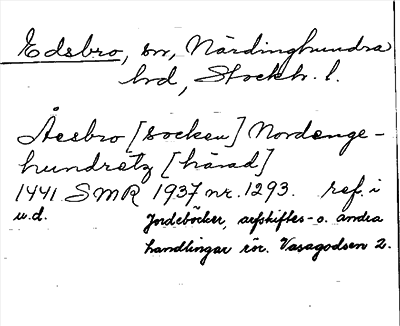 Edsbro, sn, Närdinghundra
hd, Stockh. l.
Åesbro [socken] Nordænge-
hundretz [härad]
1441 SMR 1937 nr. 1293. ref. i
u.d. Jordeböcker, arfskiftes- o. andra
handlingar rör. Vasagodsen 2.